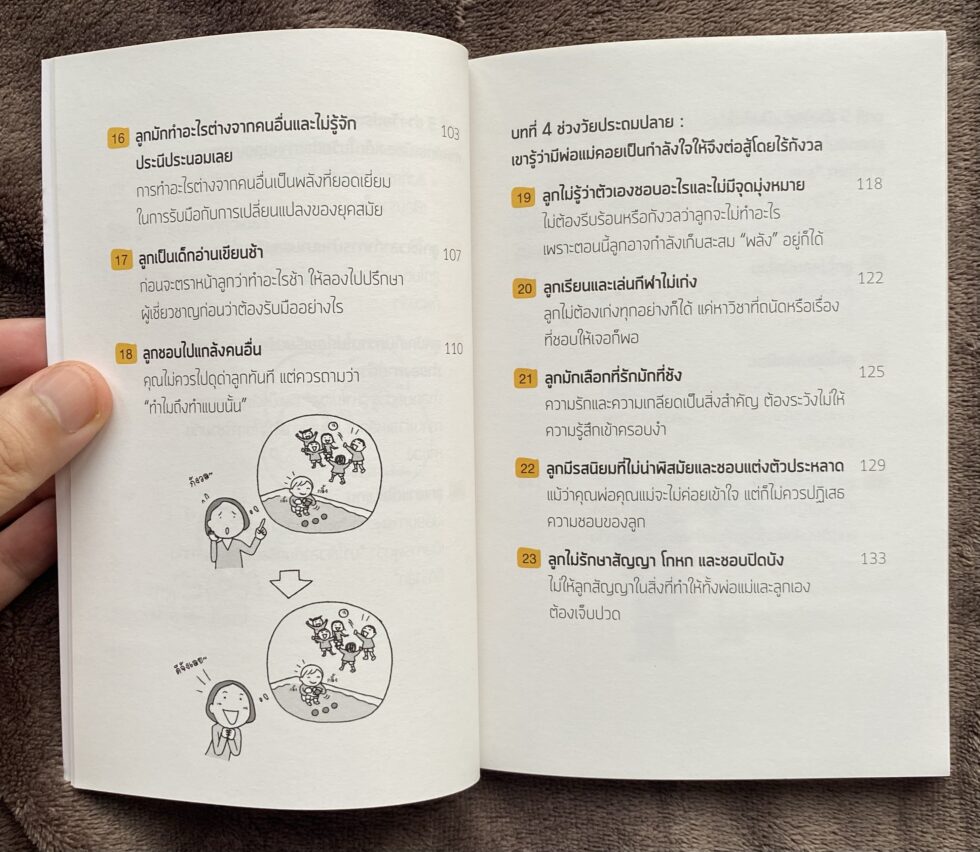 16 ลูกมักทำอะไรต่างจากคนอื่นและไม่รู้จัก 103
ประนีประนอมเลย
การทำอะไรต่างจากคนอื่นเป็นพลังที่ยอดเยี่ยม
ในการรับมือกับการเปลี่ยนแปลงของยุคสมัย
17 ลูกเป็นเด็กอ่านเขียนช้า 107
ก่อนจะตราหน้าลูกว่าทำอะไรช้า ให้ลองไปปรึกษา
ผู้เชี่ยวชาญก่อนว่าต้องรับมืออย่างไร
18 ลูกชอบไปแกล้งคนอื่น 110
คุณไม่ควรไปดุด่าลูกทันที แต่ควรถามว่า
“ทำไมถึงทำแบบนั้น”
กังวล~
ดีจังเลย~
บทที่ 4 ช่วงวัยประถมปลาย :
เขารู้ว่ามีพ่อแม่คอยเป็นกำลังใจให้จึงต่อสู้โดยไร้กังวล
19 ลูกไม่รู้ว่าตัวเองชอบอะไรและไม่มีจุดมุ่งหมาย 118
ไม่ต้องรีบร้อนหรือกังวลว่าลูกจะไม่ทำอะไร
เพราะตอนนี้ลูกอาจกำลังเก็บสะสม “พลัง” อยู่ก็ได้
20 ลูกเรียนและเล่นกีฬาไม่เก่ง 122
ลูกไม่ต้องเก่งทุกอย่างก็ได้ แค่หาวิชาที่ถนัดหรือเรื่อง
ที่ชอบให้เจอก็พอ
21 ลูกมักเลือกที่รักมักที่ชัง 125
ความรักและความเกลียดเป็นสิ่งสำคัญ ต้องระวังไม่ให้
ความรู้สึกเข้าครอบงำ
22 ลูกมีรสนิยมที่ไม่น่าพิสมัยและชอบแต่งตัวประหลาด 129
แม้ว่าคุณพ่อคุณแม่จะไม่ค่อยเข้าใจ แต่ก็ไม่ควรปฏิเสธ
ความชอบของลูก
23 ลูกไม่รักษาสัญญา โกหก และชอบปิดบัง 133
ไม่ให้ลูกสัญญาในสิ่งที่ทำให้ทั้งพ่อแม่และลูกเอง
ต้องเจ็บปวด